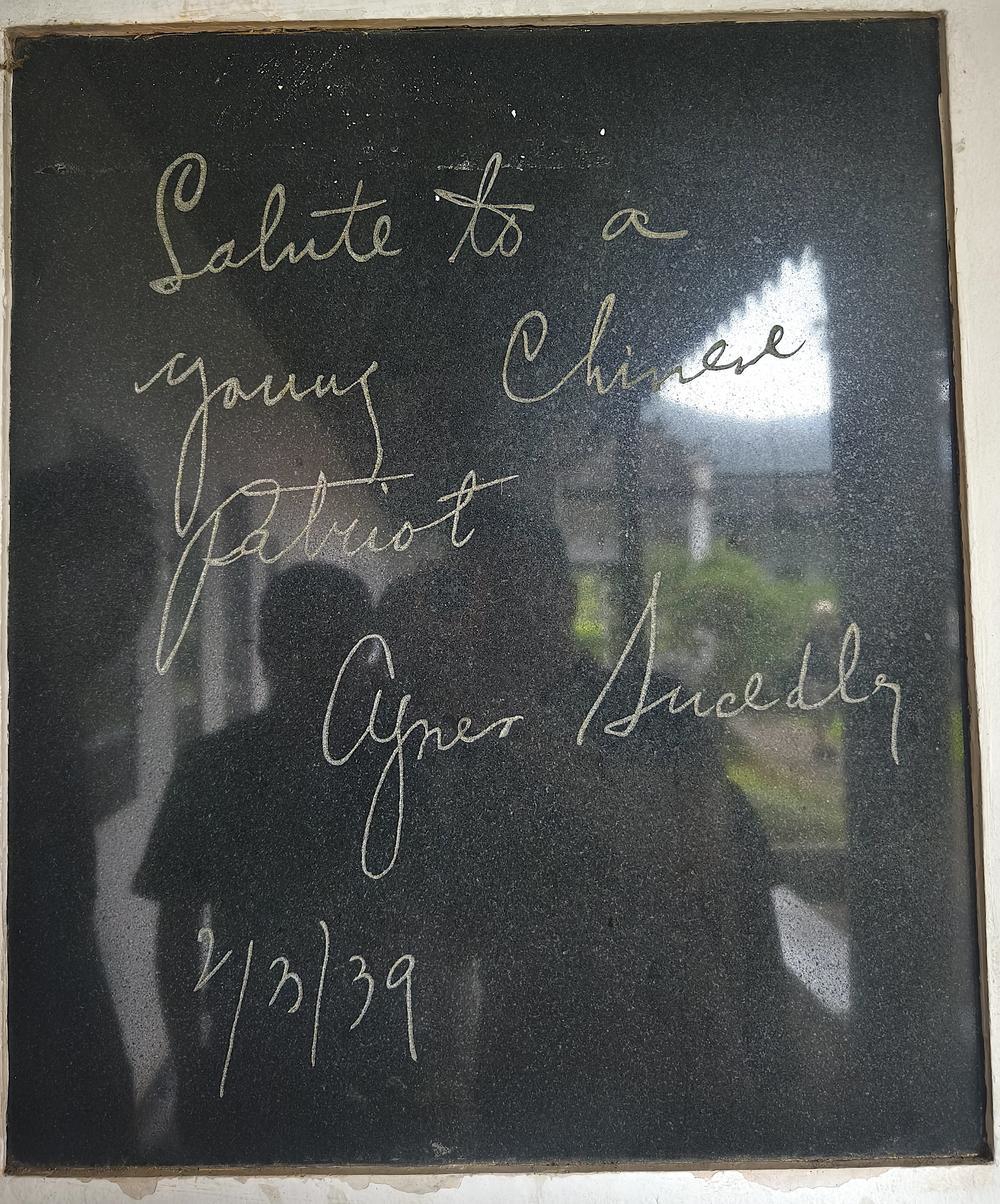 Salute to a
young Chinese
Patriot
Agnes Smedley
2/3/39